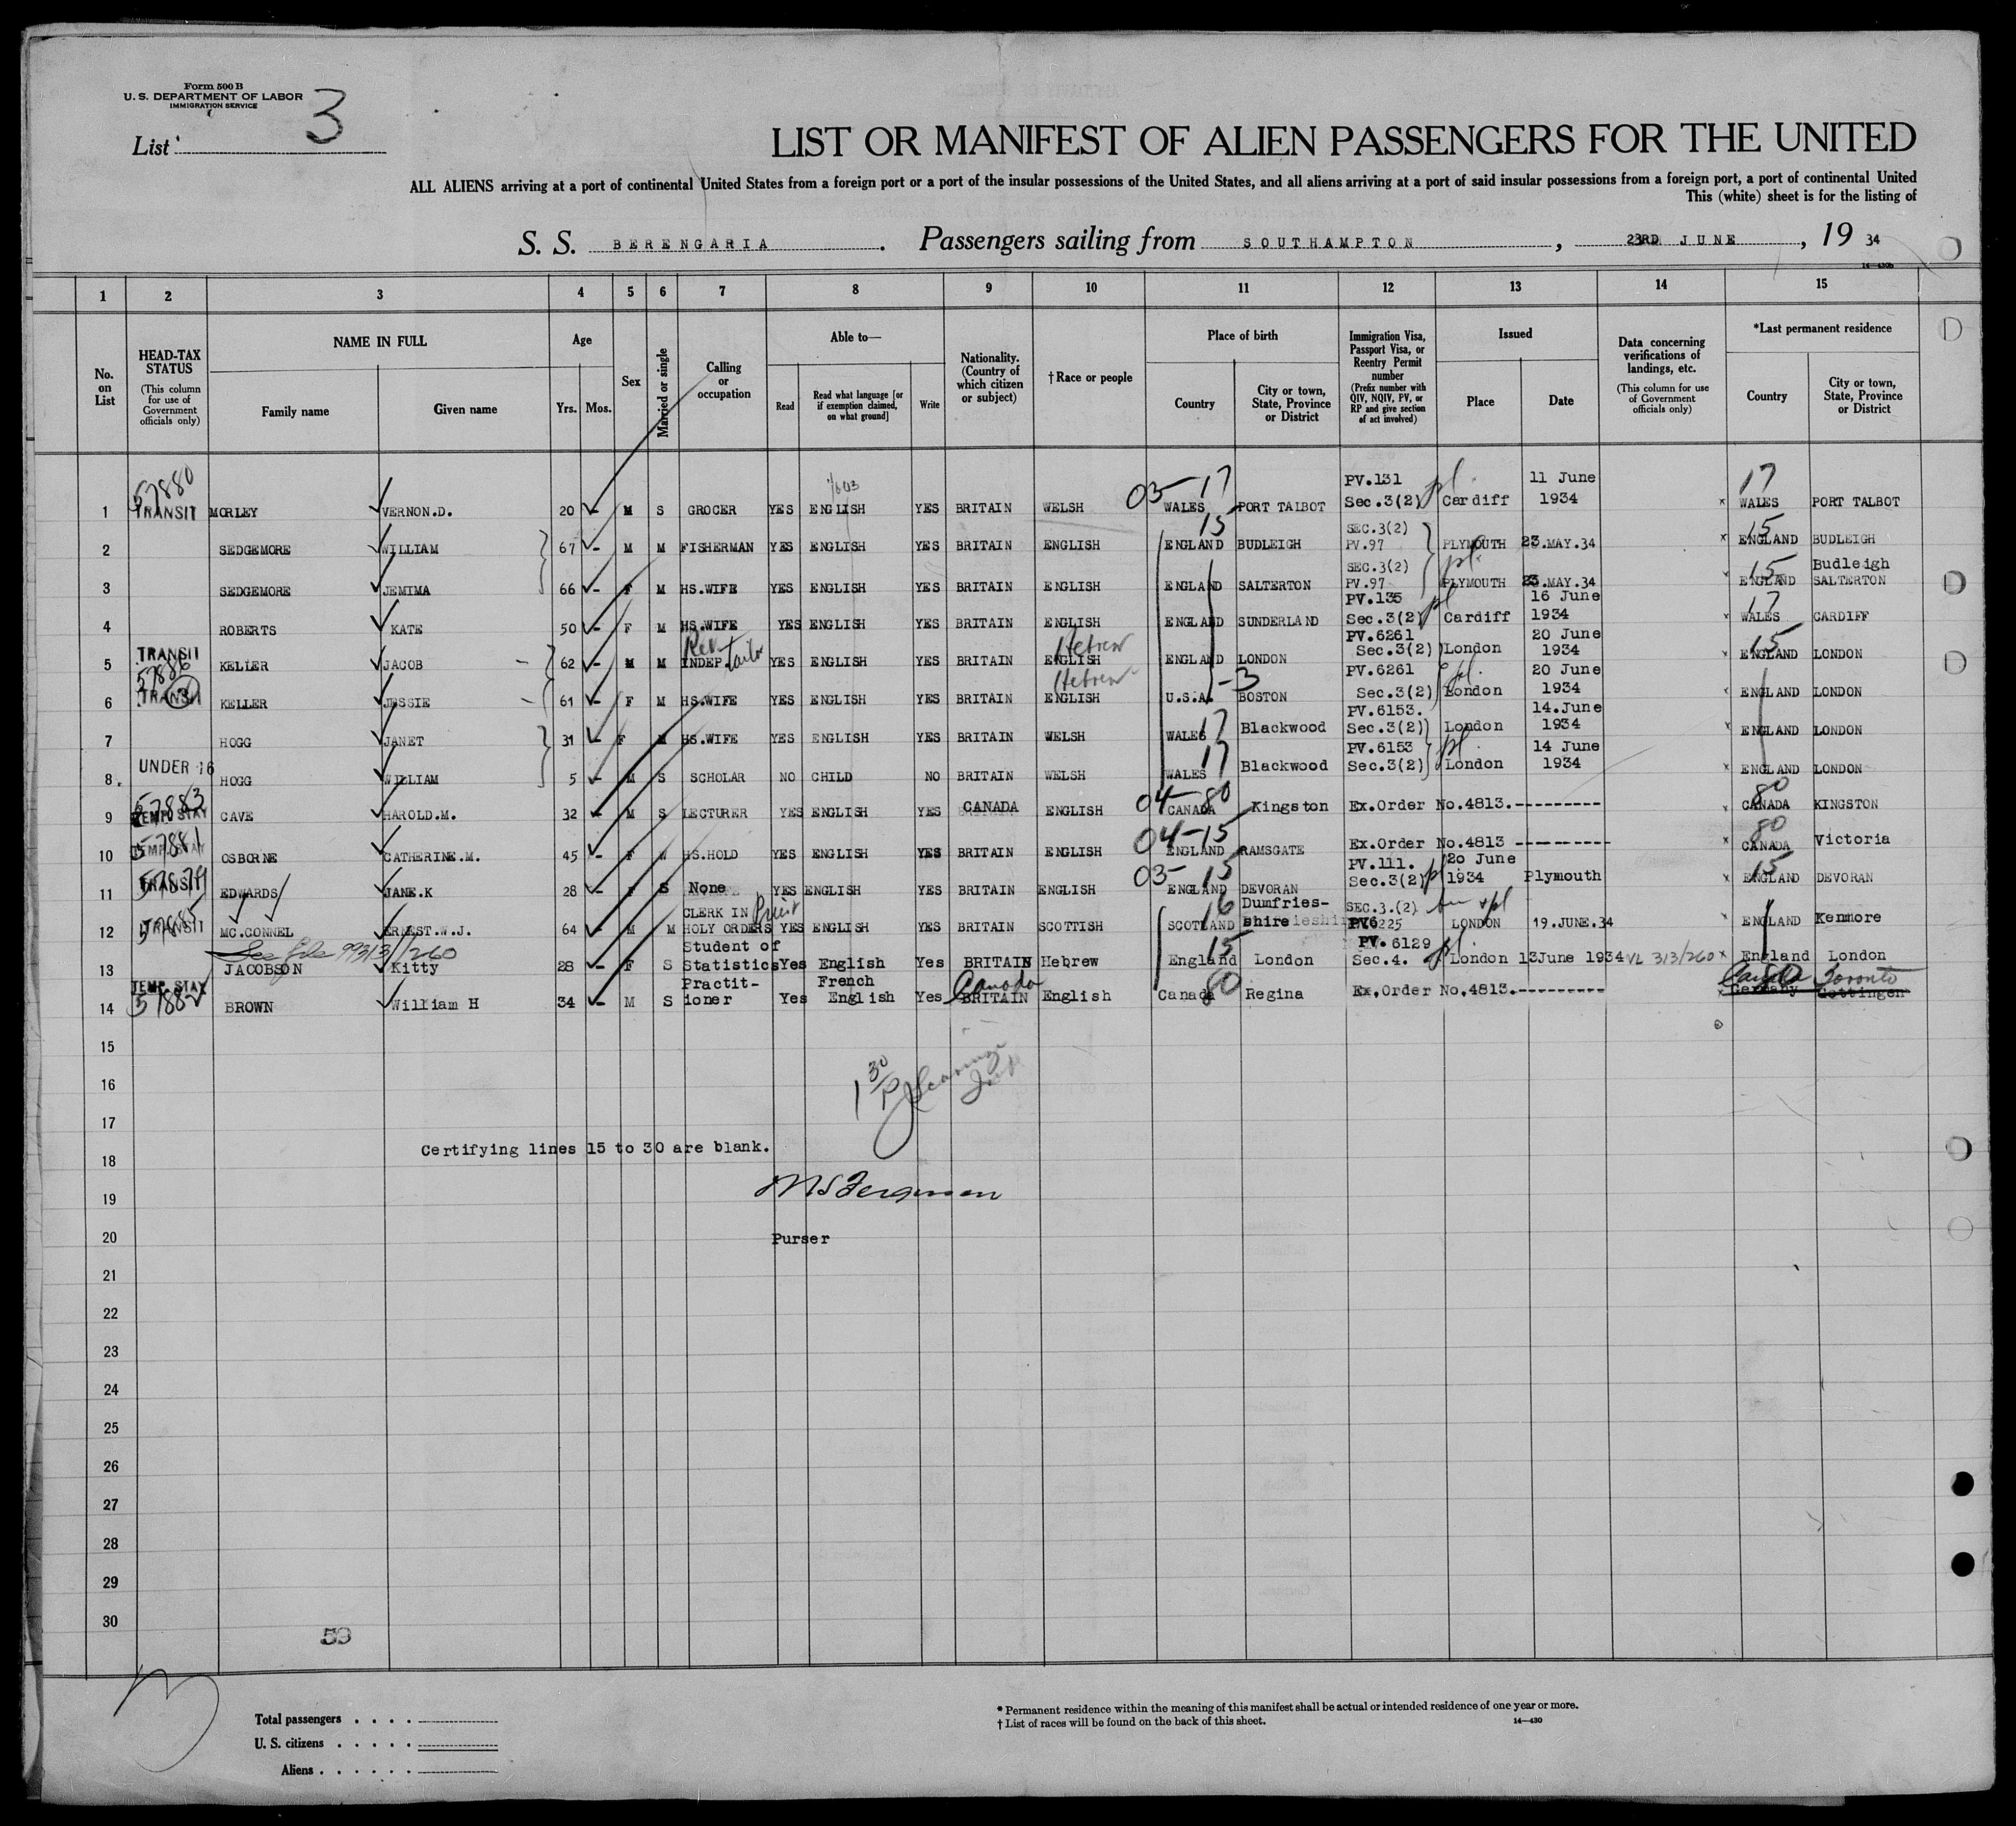 Form 500 B
U. S. DEPARTMENT OF LABOR
IMMIGRATION SERVICE
List 3
LIST OR MANIFEST OF ALIEN PASSENGERS FOR THE UNITED
ALL ALIENS arriving at a port of continental United States from a foreign port or a port of the insular possessions of the United States, and all aliens arriving at a port of said insular possessions from a foreign port, a port of continental United
This (white) sheet is for the listing of
S. S. BERENGARIA . Passengers sailing from SOUTHAMPTON , 23RD JUNE , 19 34
1 2 3 4 5 6 7 8 9 10 11 12 13 14 15
No. on List
HEAD-TAX STATUS (This column for use of Government officials only)
NAME IN FULL Family name Given name
Age Yrs. Mos.
Sex
Married or single
Calling or occupation
Able to— Read Read what language [or if exemption claimed, on what ground] Write
Nationality. (Country of which citizen or subject)
† Race or people
Place of birth Country City or town, State, Province or District
Immigration Visa, Passport Visa, or Reentry Permit number (Prefix number with QIV, NQIV, PV, or RP and give section of act involved)
Issued Place Date
Data concerning verifications of landings, etc. (This column for use of Government officials only)
*Last permanent residence Country City or town, State, Province or District
1 57880 TRANSIT MORLEY VERNON.D. 20 - M S GROCER YES ENGLISH YES BRITAIN WELSH 03-17 WALES PORT TALBOT PV.131 Sec.3(2) Cardiff 11 June 1934 x 17 WALES PORT TALBOT
2 SEDGEMORE WILLIAM 67 - M M FISHERMAN YES ENGLISH YES BRITAIN ENGLISH 15 ENGLAND BUDLEIGH SEC.3(2) PV.97 PLYMOUTH 23.MAY.34 x 15 ENGLAND BUDLEIGH
3 SEDGEMORE JEMIMA 66 - F M HS.WIFE YES ENGLISH YES BRITAIN ENGLISH ENGLAND SALTERTON SEC.3(2) PV.97 PLYMOUTH 23.MAY.34 x 15 ENGLAND Budleigh SALTERTON
4 ROBERTS KATE 50 - F M HS.WIFE YES ENGLISH YES BRITAIN ENGLISH ENGLAND SUNDERLAND PV.135 Sec.3(2) Cardiff 16 June 1934 x 17 WALES CARDIFF
5 TRANSIT 57886 KELLER JACOB 62 - M M INDEP. Ret. tailor YES ENGLISH YES BRITAIN ENGLISH Hebrew ENGLAND LONDON PV.6261 Sec.3(2) London 20 June 1934 x 15 ENGLAND LONDON
6 TRANSIT KELLER JESSIE 61 - F M HS.WIFE YES ENGLISH YES BRITAIN ENGLISH Hebrew U.S.A. -3 BOSTON PV.6261 Sec.3(2) London 20 June 1934 x ENGLAND LONDON
7 HOGG JANET 31 - F M HS.WIFE YES ENGLISH YES BRITAIN WELSH WALES 17 Blackwood PV.6153. Sec.3(2) London 14.June 1934 x ENGLAND LONDON
8. UNDER 16 HOGG WILLIAM 5 - M S SCHOLAR NO CHILD NO BRITAIN WELSH WALES 17 Blackwood PV.6153 Sec.3(2) London 14 June 1934 x ENGLAND LONDON
9 57883 TEMP. STAY CAVE HAROLD.M. 32 - M S LECTURER YES ENGLISH YES CANADA ENGLISH 04-80 CANADA Kingston Ex.Order No.4813.--------- x 80 CANADA KINGSTON
10 57881 TEMP. STAY OSBORNE CATHERINE.M. 45 - F W HS.HOLD YES ENGLISH YES BRITAIN ENGLISH 04-15 ENGLAND RAMSGATE Ex.Order No.4813 ---------- x 80 CANADA Victoria
11 57879 TRANSIT EDWARDS JANE.K 28 - F S None YES ENGLISH YES BRITAIN ENGLISH 03-15 ENGLAND DEVORAN PV.111. Sec.3(2) 20 June 1934 Plymouth x 15 ENGLAND DEVORAN
12 57885 TRANSIT MC.CONNEL ERNEST.W.J. 64 - M M CLERK IN HOLY ORDERS Priest YES ENGLISH YES BRITAIN SCOTTISH 16 SCOTLAND Dumfries-shire SEC.3.(2) PV6225 LONDON 19.JUNE.34 x ENGLAND Kenmore
See file 99313/260
13 JACOBSON Kitty 28 - F S Student of Statistics Yes English Yes BRITAIN Hebrew 15 England London PV. 6129 Sec.4. London 13June 1934 VL 313/260 x England London
14 TEMP. STAY 57882 BROWN William H 34 - M S Practit-ioner Yes French English Yes BRITAIN Canada English Canada 80 Regina Ex.Order No.4813.--------- x Germany Gottingen Canada 80 Toronto
15
16
17
Certifying lines 15 to 30 are blank.
18
19
20 Purser
21
22
23
24
25
26
27
28
29
30
59
Total passengers . . . .
U. S. citizens . . . . .
Aliens . . . . . .
* Permanent residence within the meaning of this manifest shall be actual or intended residence of one year or more.
† List of races will be found on the back of this sheet.
14—430